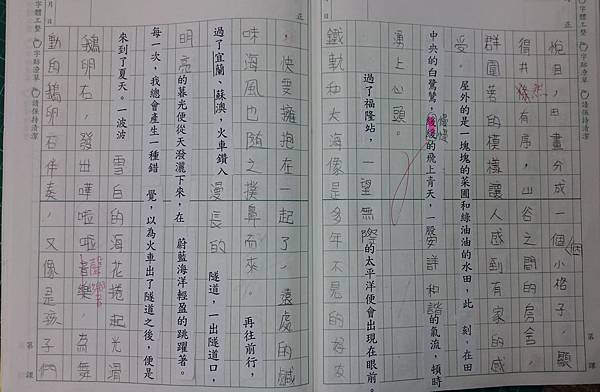 正
田畫分成一個小格子,顯
個
得井然有序,山谷之間的房舍,
群圍苦的模樣讓人感到有家的感
受。 屋外的是一塊塊的菜圃和綠油油的水田,此刻。在田
中央的白鷺鷥,緩緩的飛上青天,一股安詳和諧的氣流,頓時
湧上心頭。
過了福隆站,一望無際的太平洋便會出現在眼前。
鐵軌和大海像是多年不見的好友
月 日
第 課
正
,快要擁抱在一起了!遠處的鹹
味海風也隨之撲鼻而來。 再往前行,
過了宜蘭、蘇澳,火車鑽入漫長的隧道,一出隧道口,
明亮的暮光便從天潑灑下來,在 蔚藍海洋輕盈的跳躍著。
每一次,我總會產生一種錯覺,以為火車出了隧道之後,便是
來到了夏天。一波波雪白的海花捲起光滑
鵝卵石,發出嘩啦啦音樂,為舞
聲響
動的鵝卵石伴奏,又像是孩子們
字體工整 請保持清潔
月 日
第 課